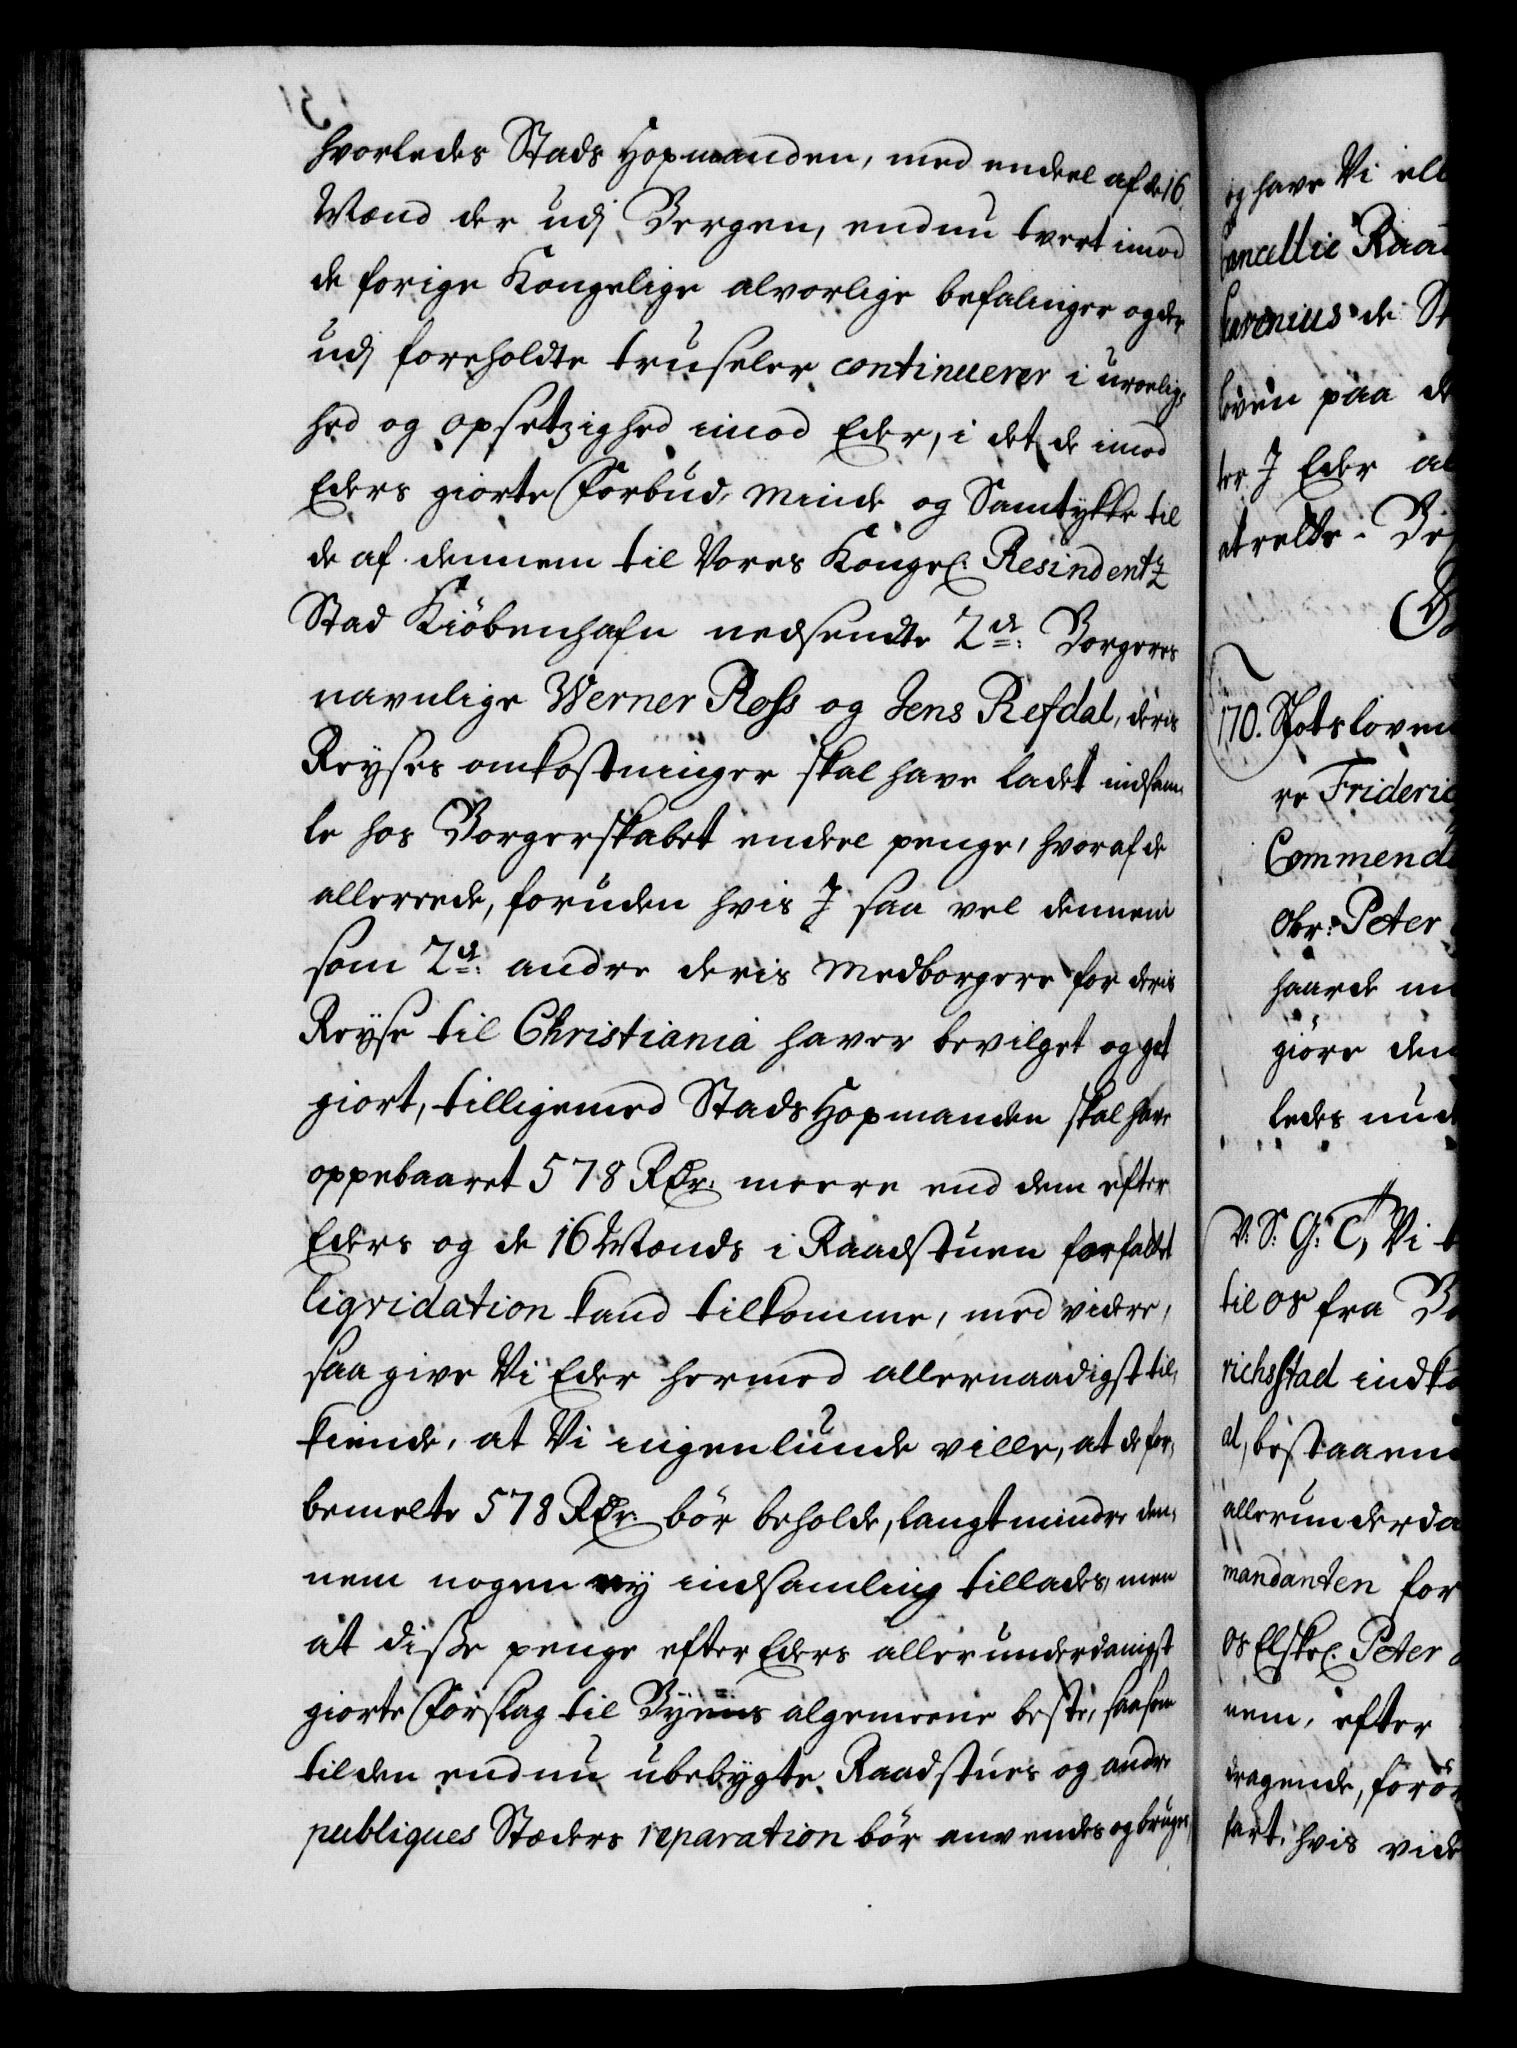 hvorledes Stads Hopmanden, med endeel af de 16
Mænd der udj Bergen, endnu tvert imod
de forige Kongelige alvorlige befalinger og der
udj foreholdte truseler continuerer i uroelig-
hed og opsetzighed imod Eder, i det de imod
Eders giorte Forbud, Minde og Samtykke til
de af dennem til Vores Kongel. Resindentz
Stad Kiöbenhafn nedsendte 2de Borgeres
navnlige Werner Ross og Jens Refdal, deris
Reyses omkostninger skal have ladet indsam-
le hos Borgerskabet endeel penge, hvoraf de
allereede, foruden hvis J saa vel dennem
som 2de andre deris Medborgere for deris
Reyse til Christiania haver bevilget og got
giort, tilligemed Stads Hopmanden skal have
oppebaaret 578 Rdr. meere end dem efter
Eders og de 16 Mænds i Raadstuen forfattet
liqvidation kand tilkomme, med videre,
saa give Vi Eder hermed allernaadigst til-
kiende, at Vi ingenlunde ville, at de for-
bemelte 578 Rdr. bör beholde, langt mindre den-
nem nogen ny indsamling tillades, men
at disse penge efter Eders allerunderdanigst
giorte Forslag til Byens algemeene beste, saasom
til den endnu ubebygte Raadstues og andre
publiques Stæders reparation bör anvendes og bruges,
og have Vi ell
Cancellie Raad
de St
loven paa de
ter J Eder al
170. Slotsloven
re Frideric
Commenda
Obr: Peter
haarde
giöre den
ledes
V. S. G. T, Vi
til os fra
richsstad indko
al, bestaaen
allerunderda
mandanten for
os Elskel. Peter
nem, efter
dragende, forö
fart, hvis vide